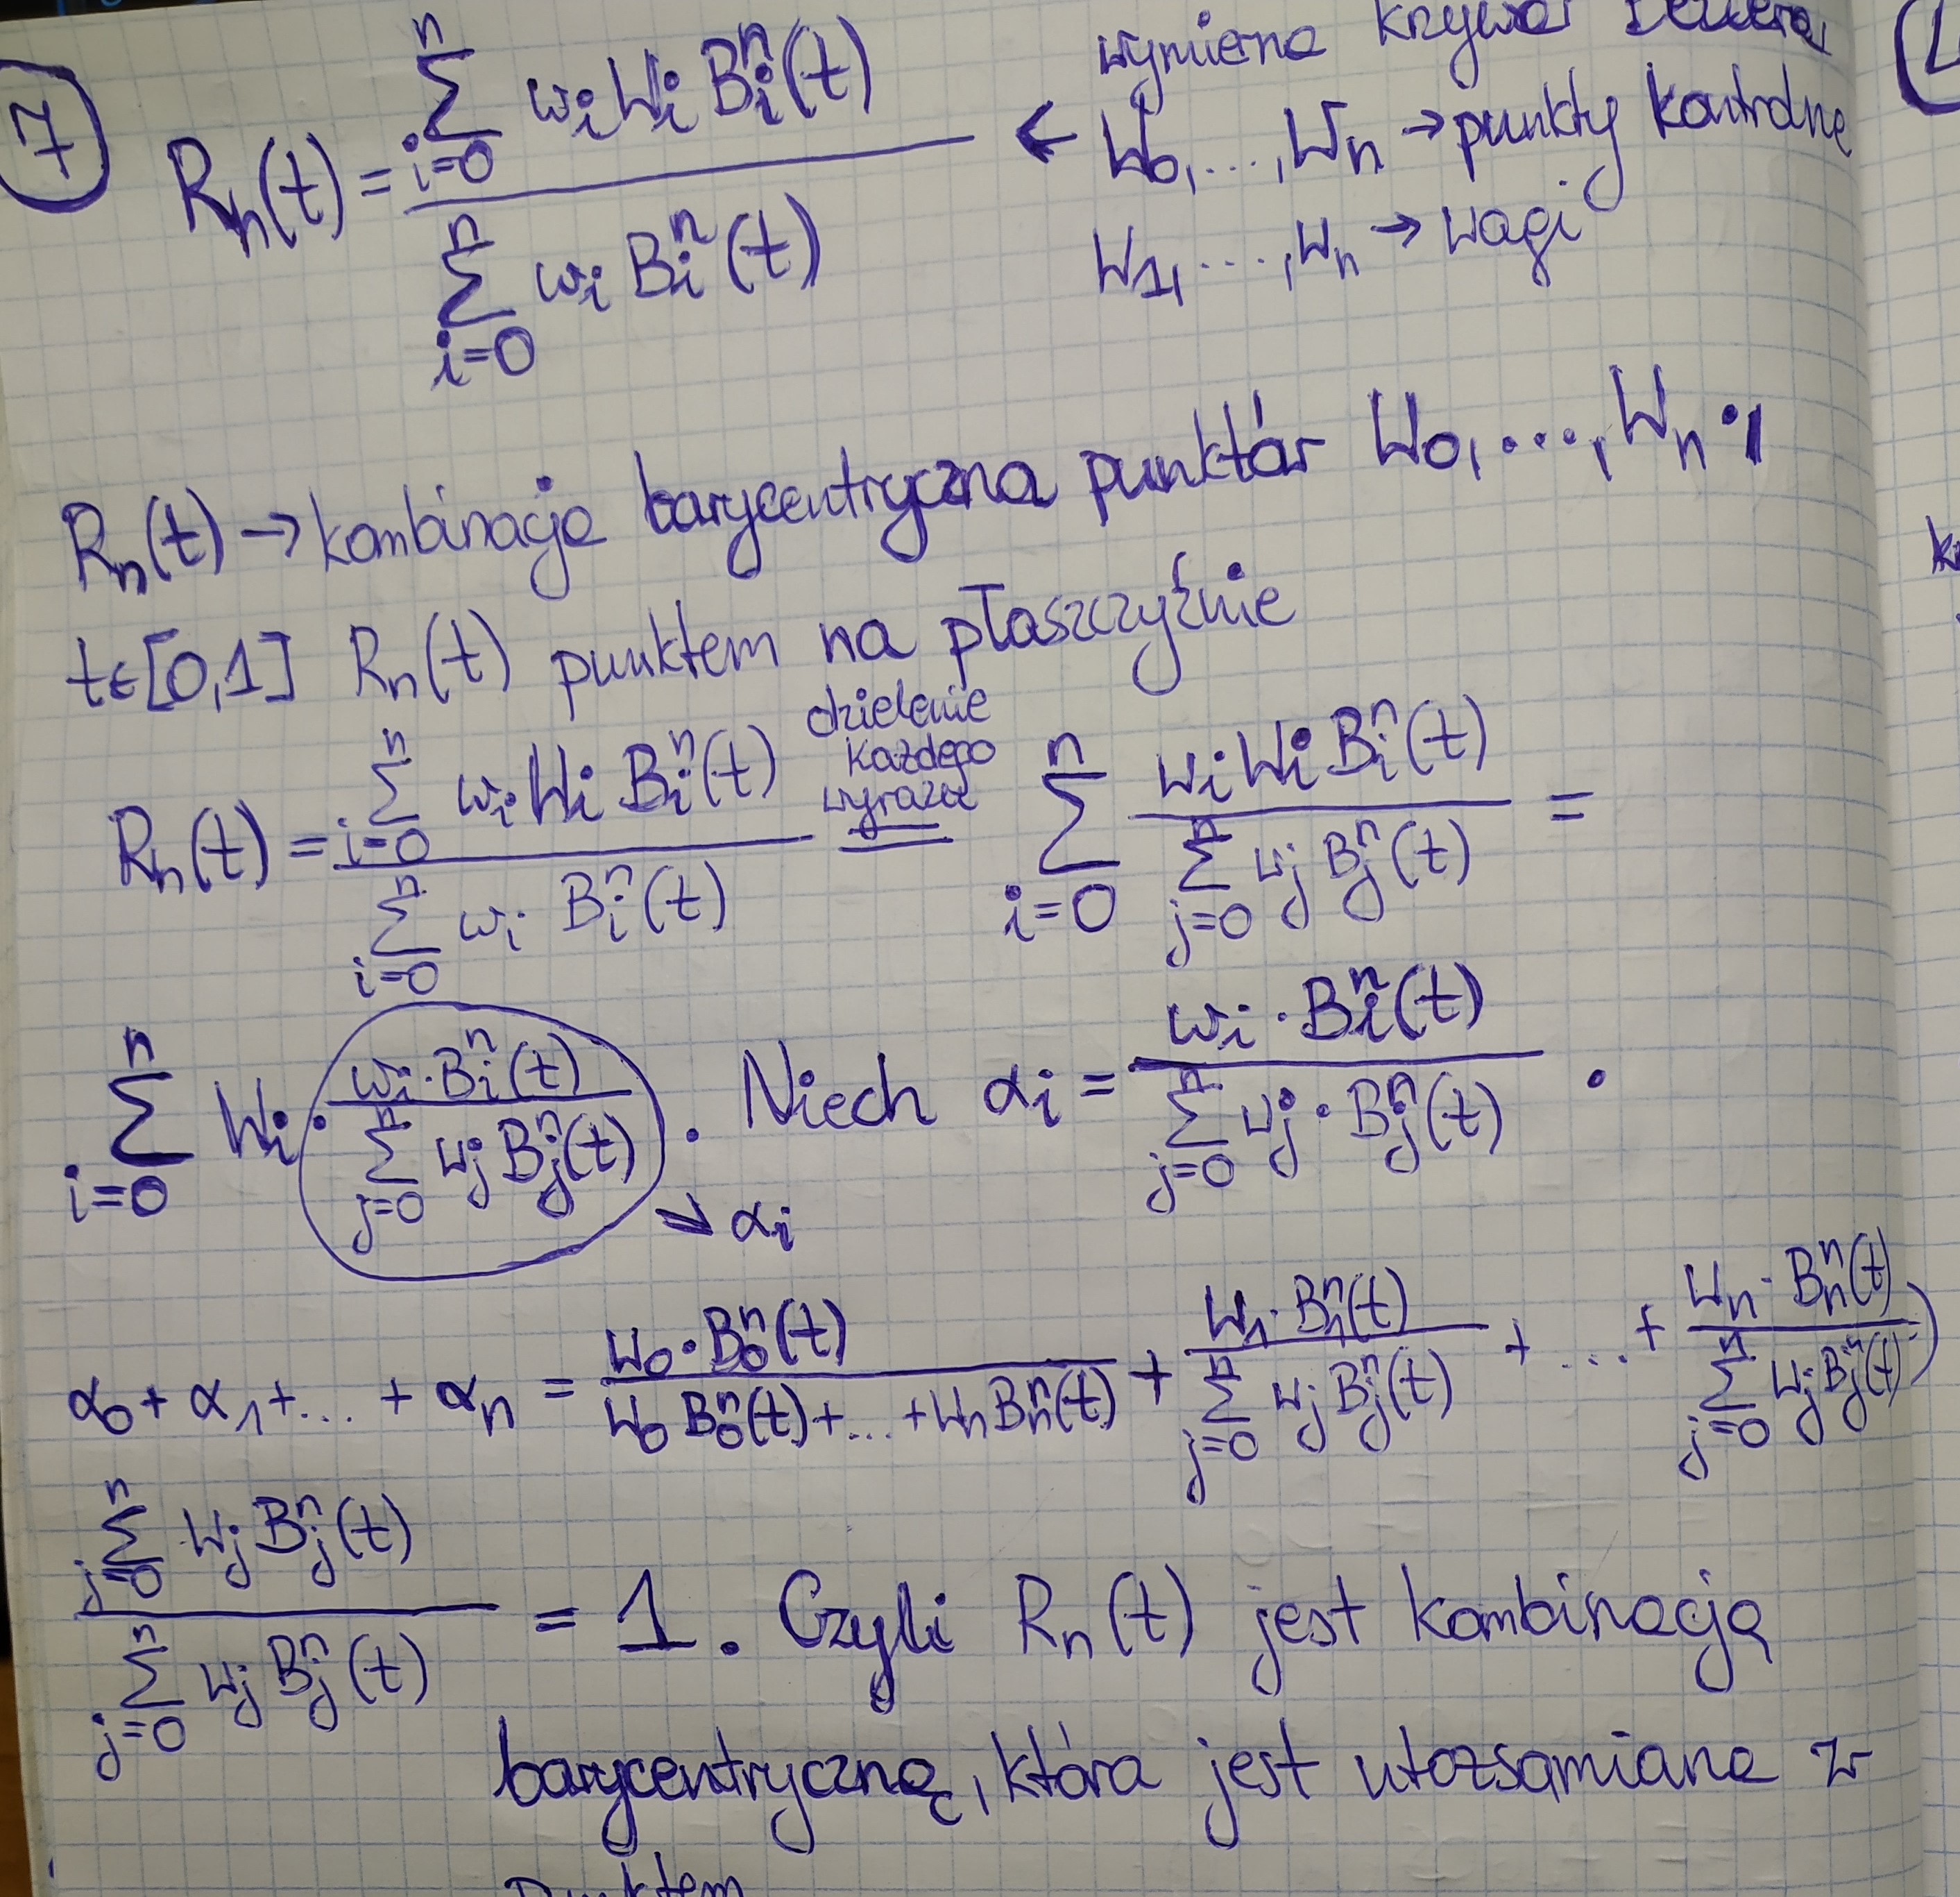 7
R_n(t) = \frac{\sum_{i=0}^{n} w_i W_i B_i^n(t)}{\sum_{i=0}^{n} w_i B_i^n(t)} ←
wymierna krzywa
W_0, ..., W_n → punkty kontrolne
w_1, ..., w_n → wagi
R_n(t) → kombinacja barycentryczna punktów W_0, ..., W_n.
t ∈ [0,1] R_n(t) punktem na płaszczyźnie
R_n(t) = \frac{\sum_{i=0}^{n} w_i W_i B_i^n(t)}{\sum_{i=0}^{n} w_i B_i^n(t)} dzielenie każdego = \sum_{i=0}^{n} \frac{w_i W_i B_i^n(t)}{\sum_{j=0}^{n} w_j B_j^n(t)} =
\sum_{i=0}^{n} W_i · \frac{w_i · B_i^n(t)}{\sum_{j=0}^{n} w_j B_j^n(t)} . Niech α_i = \frac{w_i · B_i^n(t)}{\sum_{j=0}^{n} w_j · B_j^n(t)} .
→ α_i
α_0 + α_1 + ... + α_n = \frac{w_0 · B_0^n(t)}{w_0 B_0^n(t) + ... + w_n B_n^n(t)} + \frac{w_1 · B_1^n(t)}{\sum_{j=0}^{n} w_j B_j^n(t)} + ... + \frac{w_n · B_n^n(t)}{\sum_{j=0}^{n} w_j B_j^n(t)}
\frac{\sum_{j=0}^{n} w_j B_j^n(t)}{\sum_{j=0}^{n} w_j B_j^n(t)} = 1. Czyli R_n(t) jest kombinacją
barycentryczną, która jest utożsamiana z
Punktem